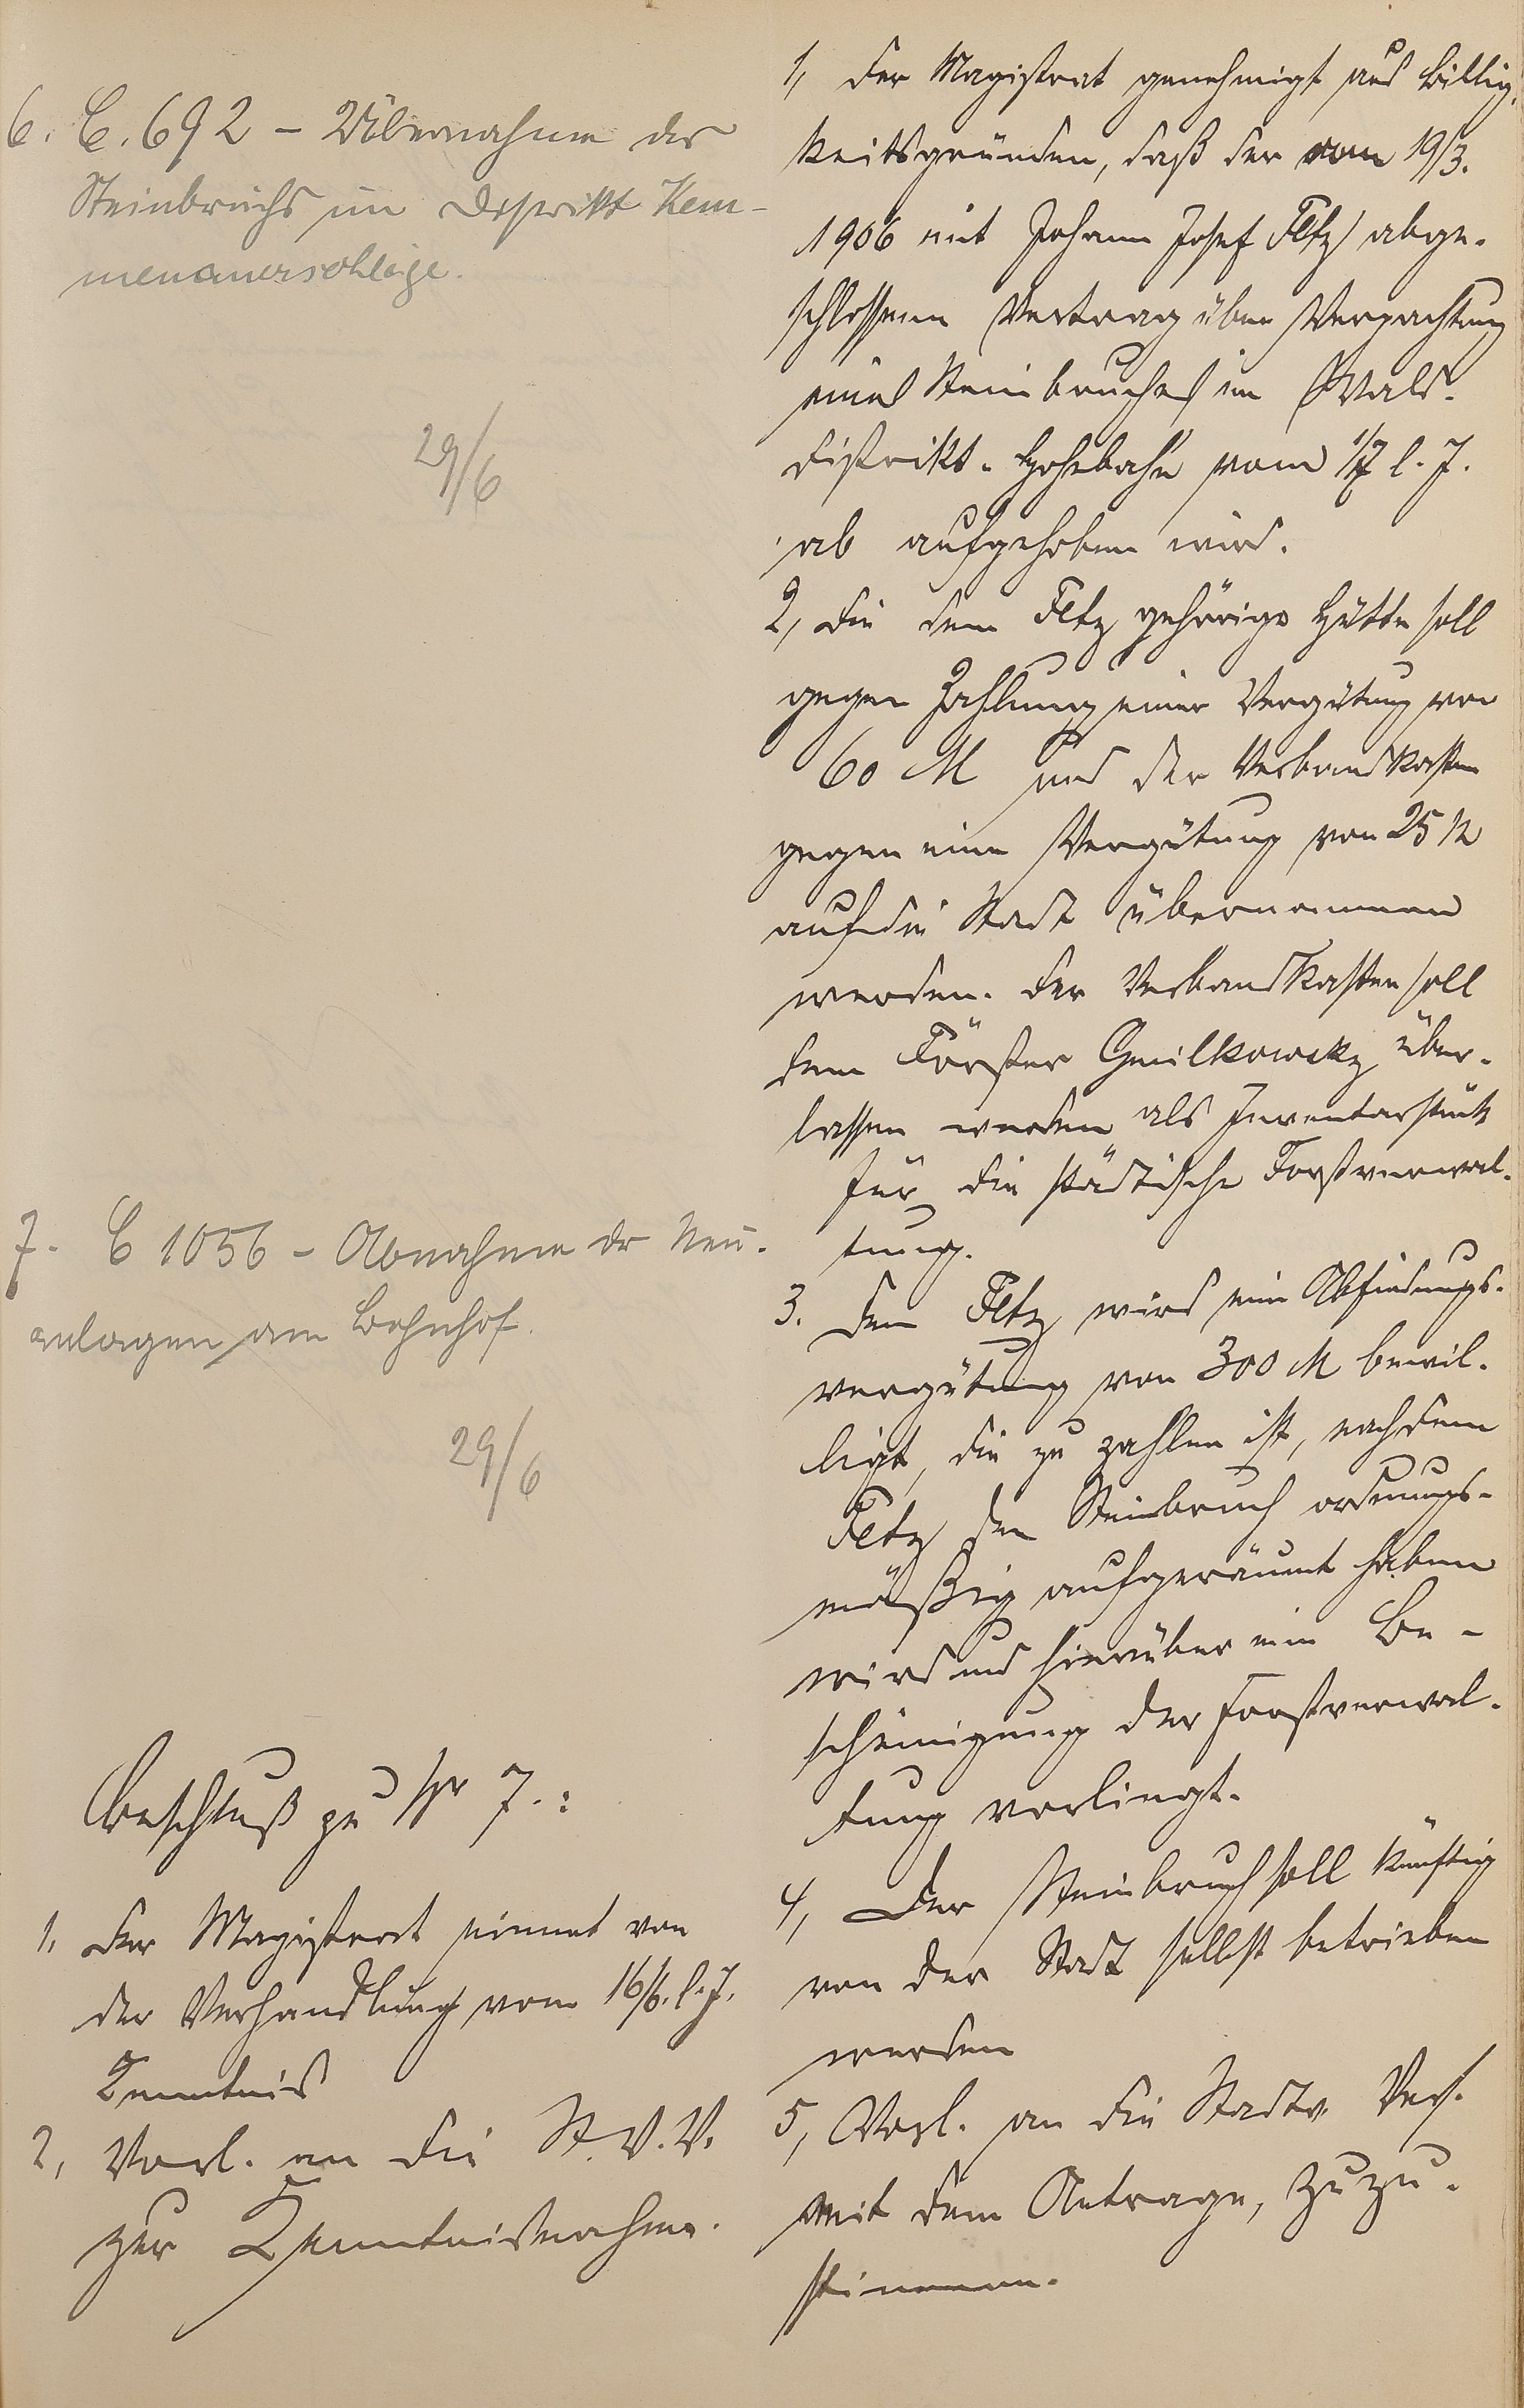 6. C. 692 - Übernahme des
Steinbruchs im Distrikt Kem-
menauerschläge.
29/6
7. C 1056 - Abnahme der Neu-
anlagen am Bahnhof.
29/6
Beschluß zu Nr 7.:
1, Der Magistrat nimmt von
der Verhandlung vom 16/6. l. J.
Kenntnis
2, Vorl. an die St. V. V.
zur Kenntnisnahme.
1, Der Magistrat genehmigt aus Billig-
keitsgründen, daß der vom 19/3.
1906 mit Johann Josef Fetz abge-
schlossene Vertrag über Verpachtung
eines Steinbruches im Wald-
distrikt-Hohebahn vom 1/7 l. J.
ab aufgehoben wird.
2, Die dem Fetz gehörige Hütte soll
gegen Zahlung einer Vergütung von
60 M und der Verbandkasten
gegen eine Vergütung von 25 M
auf die Stadt übernommen
werden. Der Verbandkasten soll
dem Förster Gmilkowsky über-
lassen werden als Inventarstück
für die städtische Forstverwal-
tung.
3. Dem Fetz wird eine Abfindungs-
vergütung von 300 M bewil-
ligt, die zu zahlen ist, nachdem
Fetz den Steinbruch ordnungs-
mäßig aufgeräumt haben
wird und hierüber eine Be-
scheinigung der Forstverwal-
tung vorliegt.
4, Der Steinbruch soll künftig
von der Stadt selbst betrieben
werden
5, Vorl. an die Stadtv. Vers.
mit dem Antrage, zuzu-
stimmen.